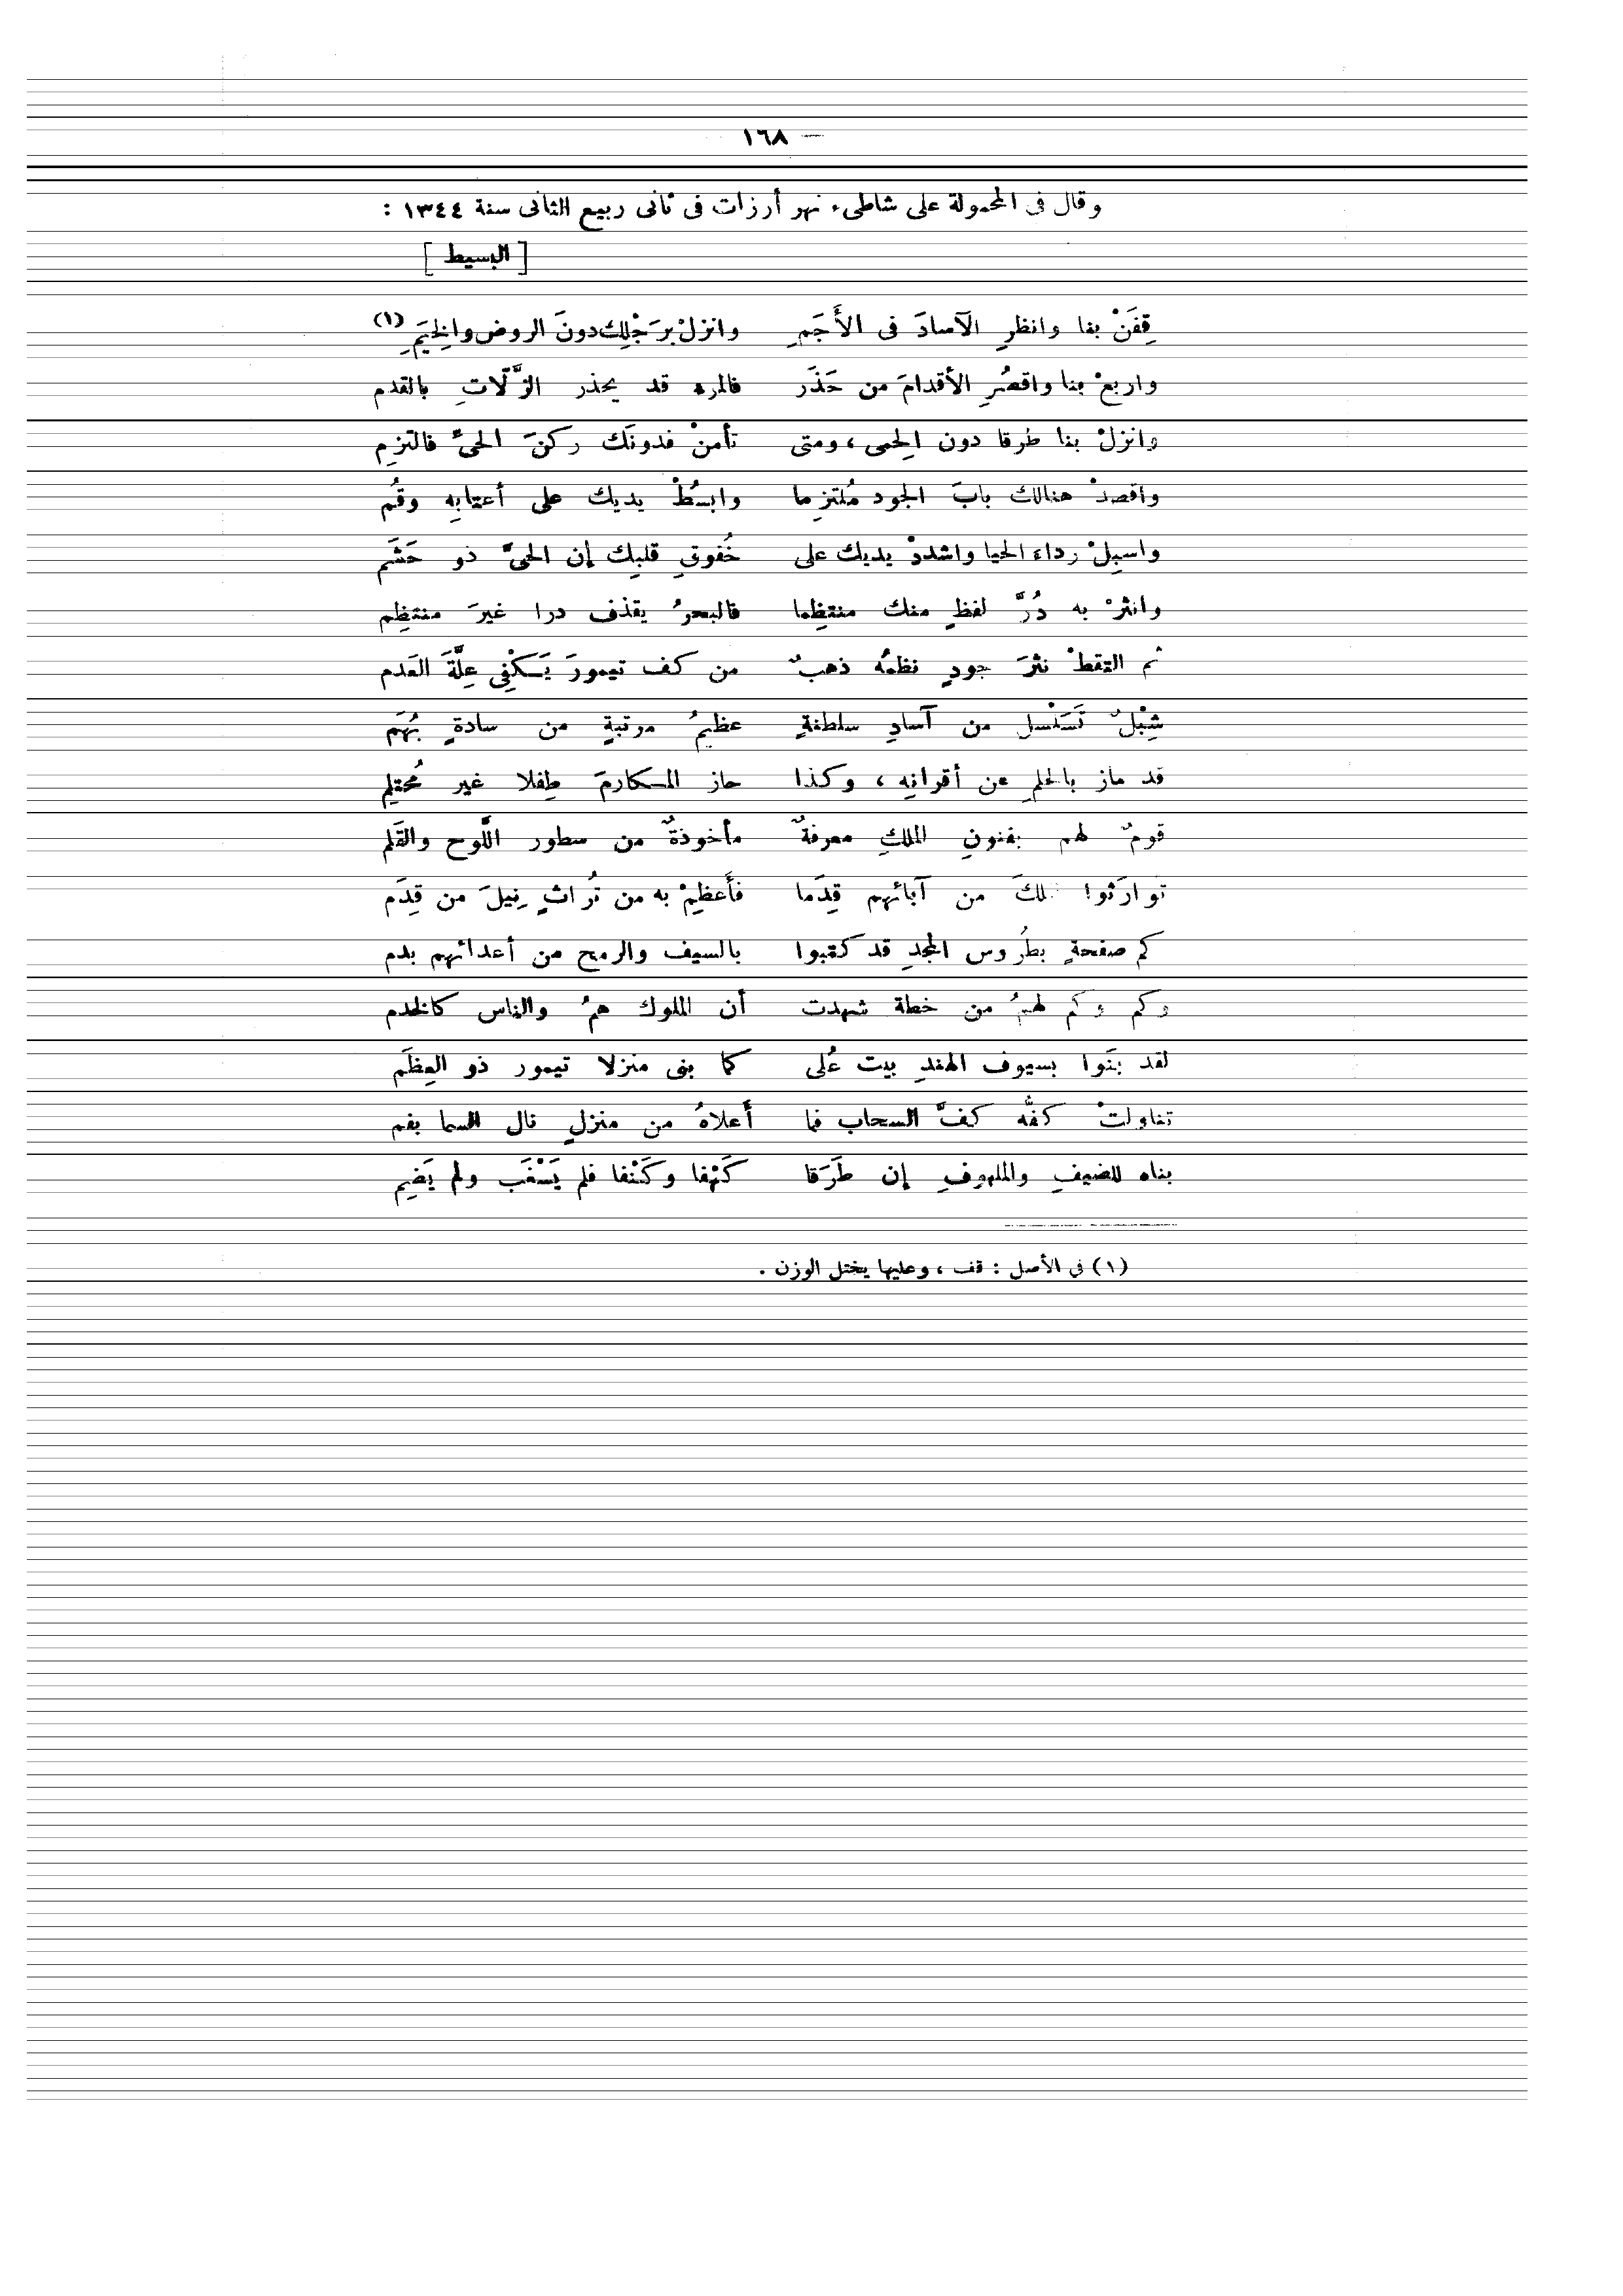 — ١٦٨
وقال فى المحمولة على شاطىء نهر أرزات فى ثانى ربيع الثانى سنة ١٣٤٤ :
[ البسيط ]
قِفَنْ بنا وانظرِ الآسادَ فى الأَجَمِ وانزلْ برَجْلِك دونَ الروض والخِيَمِ (١)
واربعْ بنا واقصُرِ الأقدامَ من حَذَر فالمرء قد يحذر الزَّلّاتِ بالقدم
وانزلْ بنا طرقا دون الحِمى ، ومتى تأمنْ فدونَك ركنَ الحىِّ فالتزمِ
واقصدْ هنالك بابَ الجود مُلتزِما وابسُطْ يديك على أعتابِهِ وقُم
واسبِلْ رداء الحيا واشددْ يديك على خُفوقِ قلبِك إن الحىَّ ذو حَشَم
وانثرْ به دُرَّ لفظٍ منك منتظِما فالبحرُ يقذف درا غيرَ منتظِم
ثم التقطْ نثرَ جودٍ نظمُه ذهبٌ من كف تيمورَ يَكْفِى عِلَّةَ العَدم
شِبْلٌ تَسَلْسل من آسادِ سلطنةٍ عظيمُ مرتبةٍ من سادةٍ بُهَم
قد ماز بالحلمِ عن أقرانِه ، وكذا حاز المكارمَ طِفلا غير مُحتلِم
قومٌ لهم بفنونِ الملكِ معرفةٌ مأخوذةٌ من سطور اللَّوح والقَلم
توارَثوا الملكَ من آبائهم قِدَما فأَعظِمْ به من تُراثٍ نِيلَ من قِدَم
كم صفحةٍ بطُروس المجدِ قد كتبوا بالسيف والرمح من أعدائهم بدم
وكم وكم لهمُ من خطة شهدت أن الملوك همُ والناس كالخدم
لقد بنَوا بسيوف الهندِ بيت عُلى كما بنى منزلا تيمور ذو العِظَم
تناولتْ كفُّه كفَّ السحاب فما أَعلاهُ من منزلٍ نال السما بفم
بناه للضيفِ والملهوفِ إن طَرَقا كَهْفا وكَنْفا فلم يَسْغَب ولم يَضِمِ
(١) فى الأصل : قف ، وعليها يختل الوزن .